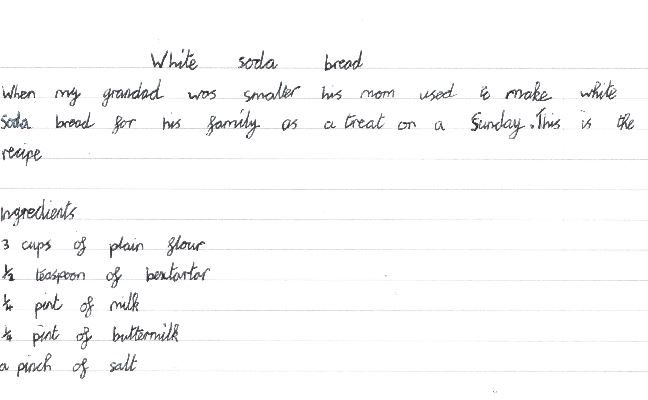 White soda bread
When my grandad was smaller his mom used to make white
soda bread for his family as a treat on a Sunday. This is the
recipe
Ingredients
3 cups of plain flour
½ teaspoon of bextartar
¼ pint of milk
¼ pint of buttermilk
a pinch of salt